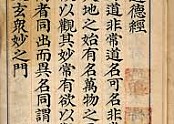 德經
道非常道名可名非
地之始有名萬物之
以觀其妙常有欲以
者同出而異名同謂
玄衆妙之門